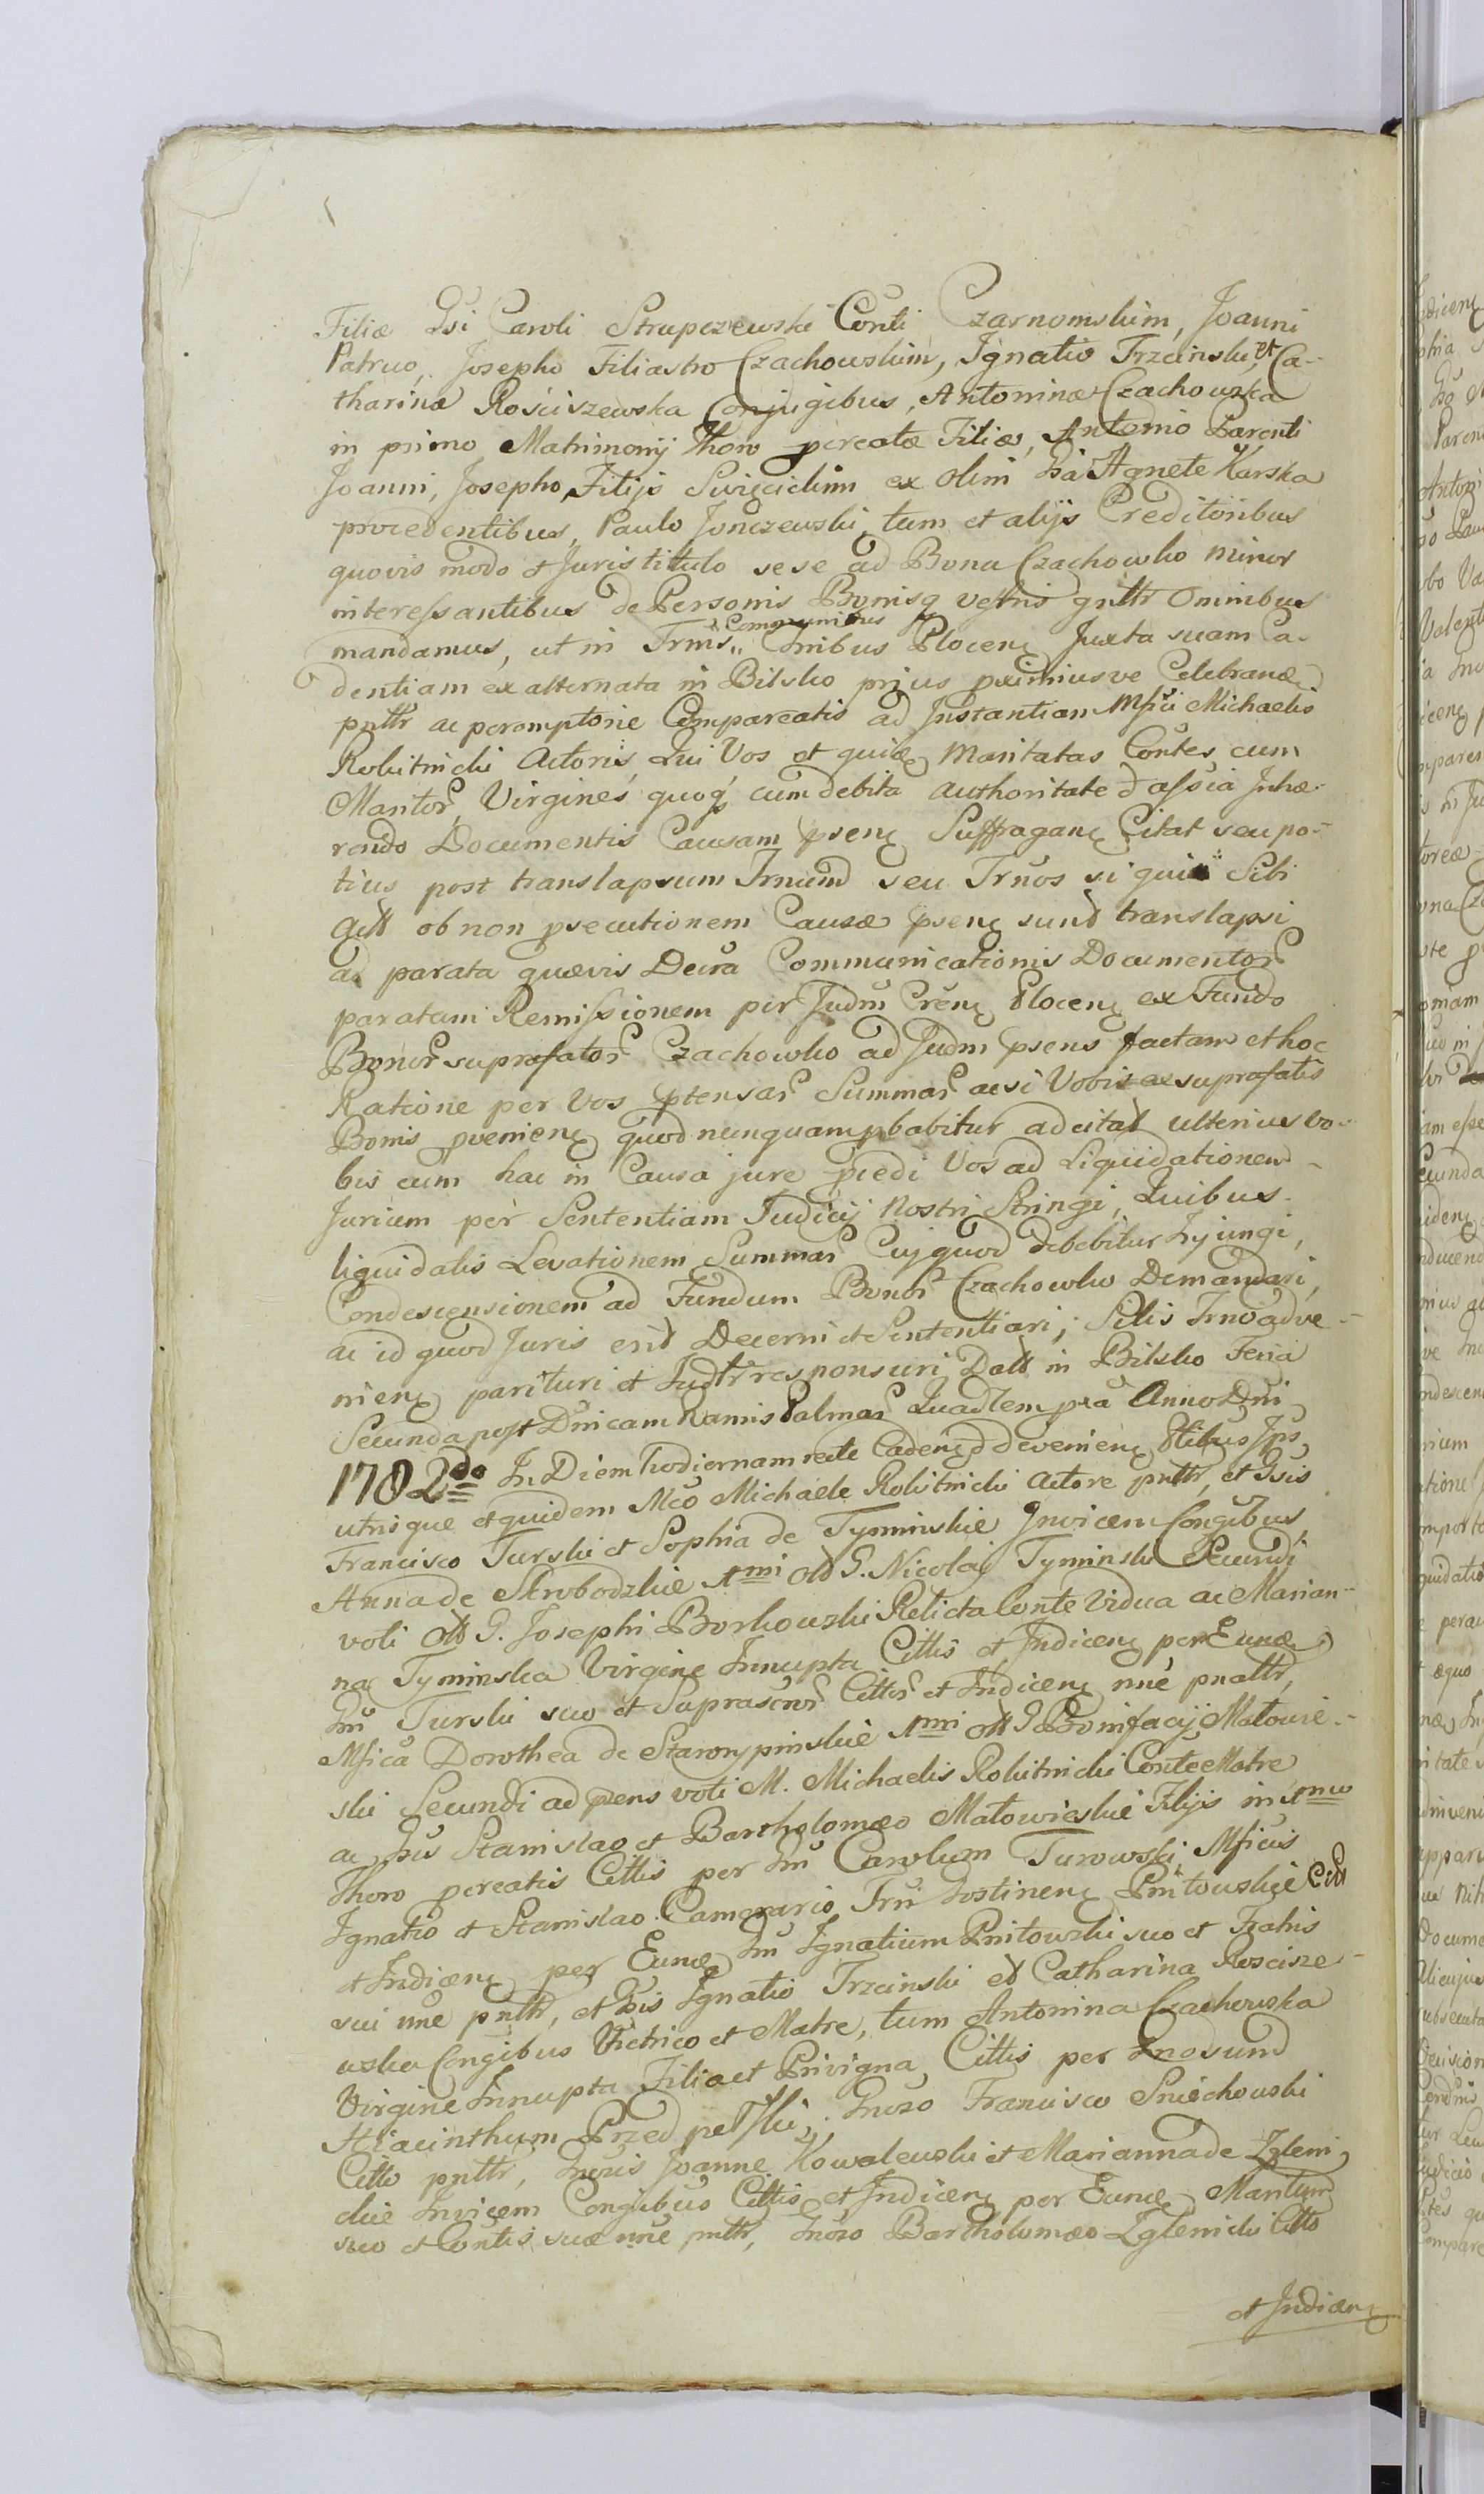 Filiæ Gsi Caroli Strupczewski Conti Czarnomskim, Joanni
Patruo, Josepho Filiastro Czachowskim, Ignatio Trzcinski, et Ca-
tharinæ Rosciszewska Conjugibus, Antoninæ Czachowska
in primo Matrimonij Thoro pcreatæ Filiæ, Antonio Parenti
Joanni, Josepho Filijs Swięcickim ex olim Gsa Agnete Karska
procedentibus, Paulo Jonczewski, tum et alijs Creditoribus
quovis modo et Juris titulo sese ad Bona Czachowko minor
interessantibus de Personis Bonisq vestris gnltr Omnibus
mandamus, ut in Trmis Communibus Tnibus Plocen Juxta suam Ca-
dentiam ex alternata in Bilsko prius pximiusve Celebran
pnltr ac peremptorie Compareatis ad Instantiam Mfici Michaelis
Rokitnicki Actoris, Qui Vos et quidē Maritatas Contes, cum
Maritor, Virgines quoq cum debita authoritate d assia Inhæ-
rendo Documentis Causam psen Suffragan Citat seu po-
tius post translapsum Trnum seu Trnos si qui Sibi
Actt ob non psecutionem Causæ psen sunt translapsi
ad parata quævis Decra Communicationis Documentor
paratam Remissionem per Judm Cren Plocen ex Fundo
Bonor suprafator Czachowko ad Judm psens factam et hoc
Ratione per Vos ptensar Summar acsi Vobis ex suprafatis
Bonis pvenien quod nunquam pbabitur adcitat ulterius vo-
bis cum hac in Causa jure pcedi Vos ad Liquidationem
Jurium per Sententiam Judicij Nostri Stringi, Quibus
liquidatis Levationem Summar Cuj quod debebitur Injungi,
Condescensionem ad Fundum Bonor Czachowko Demandari,
ac id quod Juris erit Decerni et Sententiari; Sitis Trno adve-
nien parituri et Judtr responsuri Datt in Bilsko Feria
Secunda post Dnicam Ramis Palmar Quadlem pra Anno Dni
1782do In Diem hodiernam recte Caden d devenien Ptibus Ips
utrisque et quidem Mco Michaele Rokitnicki Actore pnltr, et Gsis
Francisco Turski et Sophia de Tyminskie Invicem Congibus,
Anna de Skrobodzkie 1mi olt G. Nicolai Tyminski Secundi
voti olt G. Josephi Borkowski Relicta Conte Vidua ac Marian-
na Tyminska Virgine Innupta Cittis et Indicen per Eund
Gm Turski suo et Suprascror Cittor et Indicen nne pnltr,
Mfica Dorothea de Starorypinskie 1mi olt G Bonifacij Matowie-
ski Secundi ad psens voti M. Michaelis Rokitnicki Conte Matre
ac Gsis Stanislao et Bartholomæo Matowieskie Filijs in 1mo
Thoro pcreatis Cittis per Gm Carolum Turowski, Mficis
Ignatio et Stanislao Camerario Trri Gostinen Pnitowskie Citt
et Indicen per Eund Gm Ignatium Pnitowski suo et Fratris
sui nne pnltr, et Gsis Ignatio Trzcinski et Catharina Roscisze-
wska Congibus Vitrico et Matre, tum Antonina Czachowska
Virgine Innupta Filia et Privigna, Cittis per Gnosum
Hiacinthum Przedpełski; Gnoso Francisco Sniechowski
Citto pnltr, Gnosis Joanne Kowalewski et Marianna de Zgleni-
ckie Invicem Congibus Cittis et Indicen per Eund Maritum
suo et Contis suæ nne pnltr, Gnoso Bartholomæo Zglenicki Citto
et Indicen